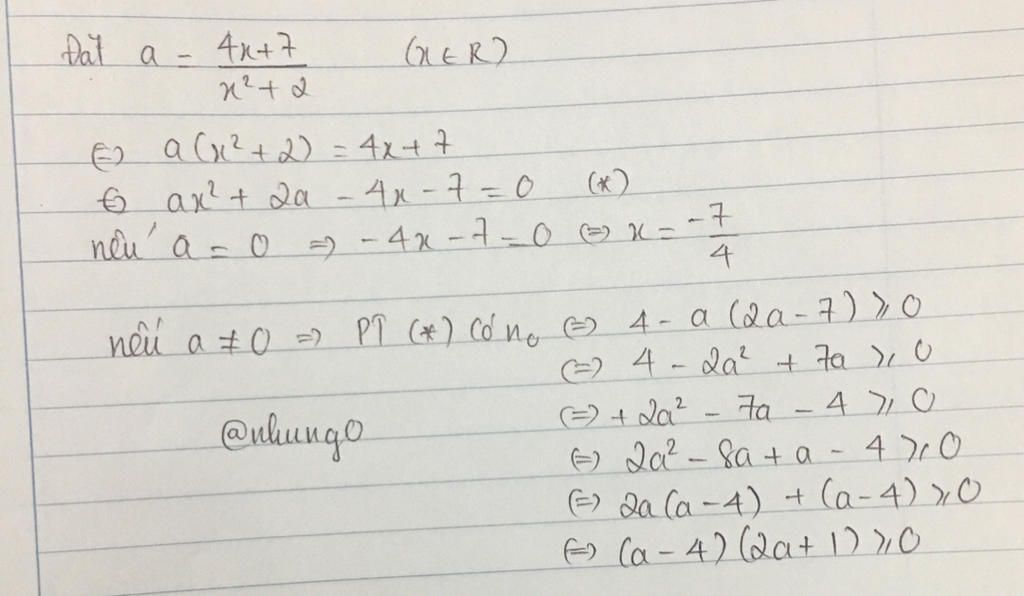 Đặt a = \frac{4x+7}{x²+2} (x ∈ R)
⇔ a(x²+2) = 4x+7
⇔ ax² + 2a - 4x - 7 = 0 (*)
nếu a = 0 ⇒ -4x - 7 = 0 ⇔ x = \frac{-7}{4}
nếu a ≠ 0 ⇒ PT (*) có n₀ ⇔ 4 - a(2a-7) ⩾ 0
⇔ 4 - 2a² + 7a ⩾ 0
⇔ +2a² - 7a - 4 ⩾ 0
@nhung0
⇔ 2a² - 8a + a - 4 ⩾ 0
⇔ 2a(a-4) + (a-4) ⩾ 0
⇔ (a-4)(2a+1) ⩾ 0